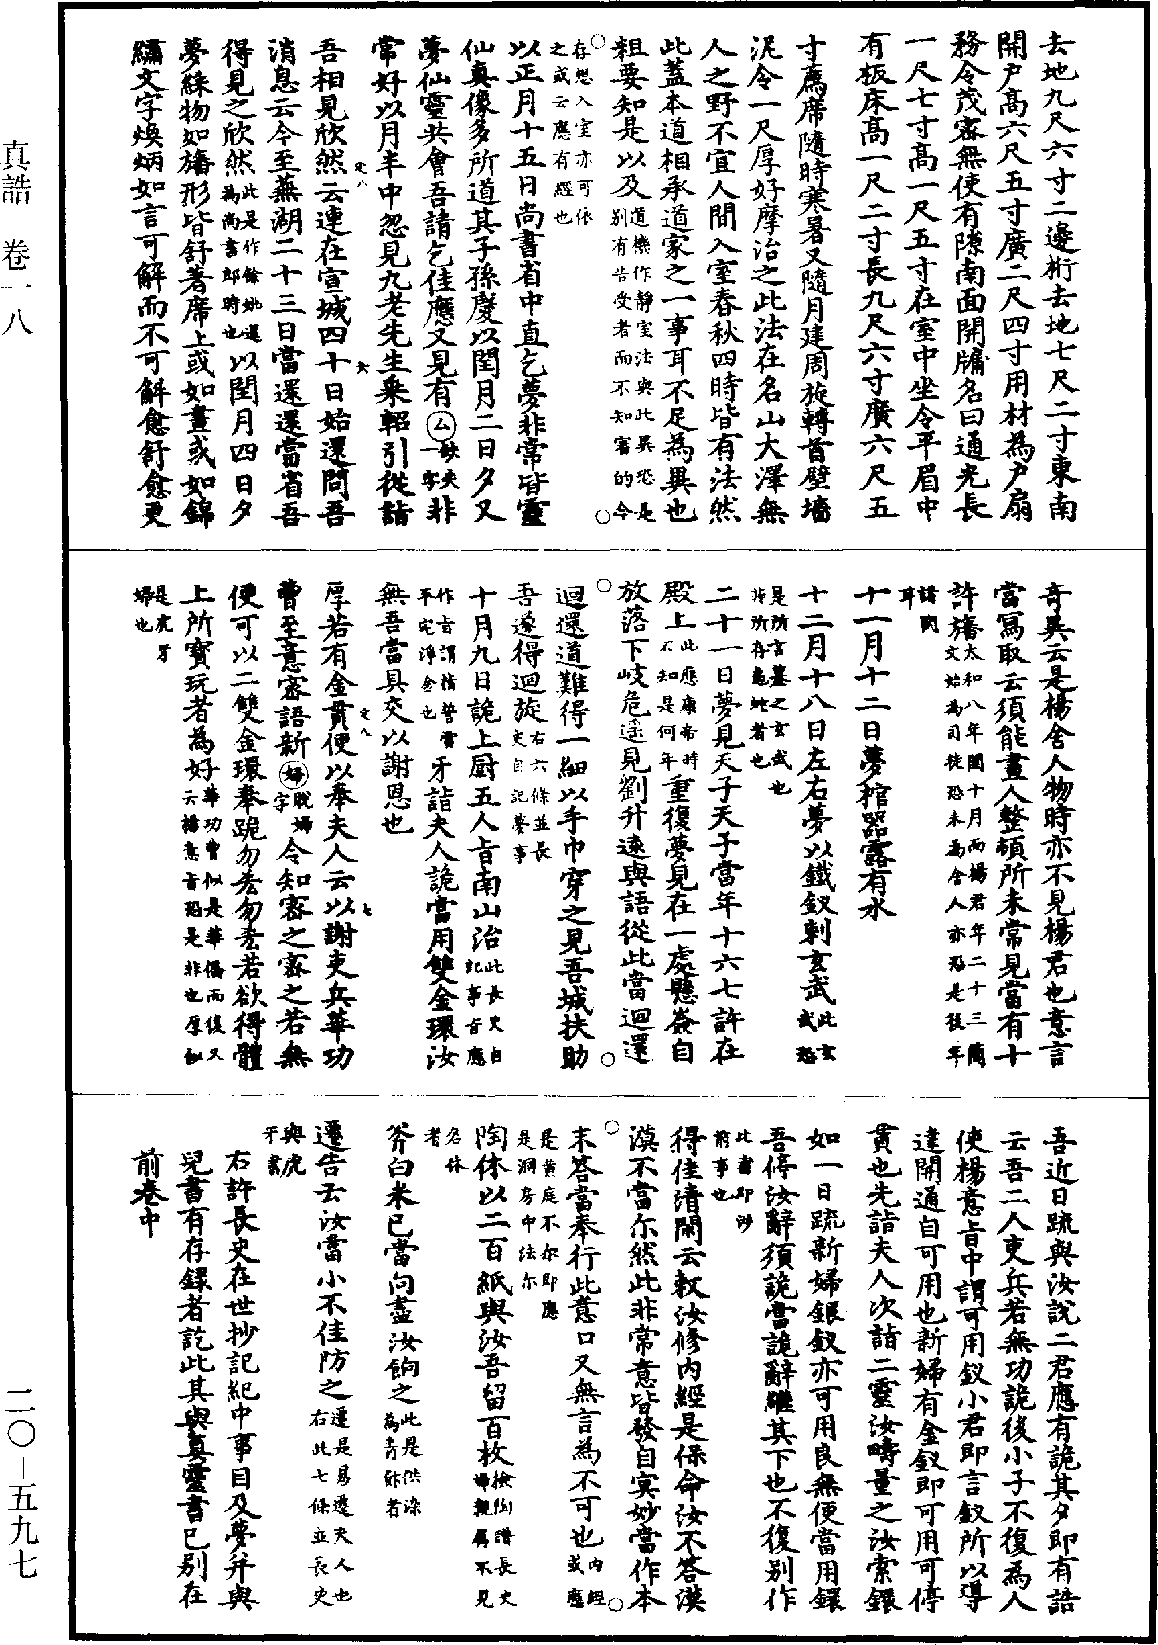 真誥　卷一八
二〇—五九七
去地九尺六寸二邊桁去地七尺二寸東南
開戶高六尺五寸廣二尺四寸用材為戶扇
務令茂密無使有隙南面開牖名曰通光長
一尺七寸高一尺五寸在室中坐令平眉中
有板床高一尺二寸長九尺六寸廣六尺五
寸薦席隨時寒暑又隨月建周旋轉首壁墻
泥令一尺厚好摩治之此法在名山大澤無
人之野不宜人間入室春秋四時皆有法然
此蓋本道相承道家之一事耳不足為異也
粗要知是以及道機作靜室法與此異恐是別有告受者而不知審的今
○存想入室亦可依之或云應有經也○
以正月十五日尚書省中直乞夢非常皆靈
仙真像多所道其子孫慶以閏月二日夕又
夢仙靈共會吾請乞佳應又見有厶缺失一字非
常好以月半中忽見九老先生乘軺引從詣
定八　六
吾相見欣然云連在宣城四十日始還問吾
消息云今至蕪湖二十三日當還還當省吾
得見之欣然此是作餘姚還為尚書郎時也以閏月四日夕
夢綵物如旛形皆舒著席上或如畫或如錦
繡文字煥炳如言可解而不可解愈舒愈更
奇異云是楊舍人物時亦不見楊君也意言
當寫取云須能畫人整頓所未常見當有十
許旛太和八年閏十月而楊君年二十三簡文始為司徒恐未為舍人亦恐是後年
諸閏耳
十一月十二日夢棺器露有水
十二月十八日左右夢以鐵釵刺玄武此玄武恐
是所言墓之玄武也非所存龜蛇者也
二十一日夢見天子天子當年十六七許在
殿上此應康帝時不知是何年重復夢見在一處懸崟自
放落下岐危遥見劉升遠與語從此當迴還
迴還道難得一細以手巾穿之見吾城扶助
吾遂得迴旋右六條並長史自記夢事
十月九日詭上厨五人旨南山治此長史自記事旨應
作言謂清誓當平宅淨舍也牙詣夫人詭當用雙金環汝
無吾當具交以謝恩也
定八　七
厚若有金貫便以奉夫人云以謝吏兵華功
曹至意密語新婦脫婦字令知密之密之若無
便可以二雙金環奉跪勿忘勿忘若欲得體
上所寶玩者為好華功曹似是華僑而復又云楊意旨恐是非也厚似
是虎牙婦也
吾近日疏與汝說二君應有詭其夕即有誥
云吾二人吏兵若無功詭後小子不復為人
使楊意旨中謂可用釵小君即言釵所以導
達開通自可用也新婦有金釵即可用可停
貫也先詣夫人次詣二靈汝疇量之汝索鐶
如一日疏新婦銀釵亦可用良無便當用鐶
吾停汝辭須詭當詭辭繼其下也不復別作
此書即涉前事也
得佳清閑云敕汝修內經是保命汝不答漠
漠不當尔然此非常意皆發自冥妙當作本
末答當奉行此意口又無言為不可也內經或應
是黃庭不尔即應是洞房中法尔
陶休以二百紙與汝吾留百枚檢陶譜長史婦親屬不見
名休者
斧白米已當向盡汝餉之此是供染為青䬳者
遷告云汝當小不佳防之遷是易遷夫人也右此七條並長史
與虎牙書
右許長史在世抄記紀中事目及夢并與
兒書有存録者訖此其與真靈書已別在
前卷中